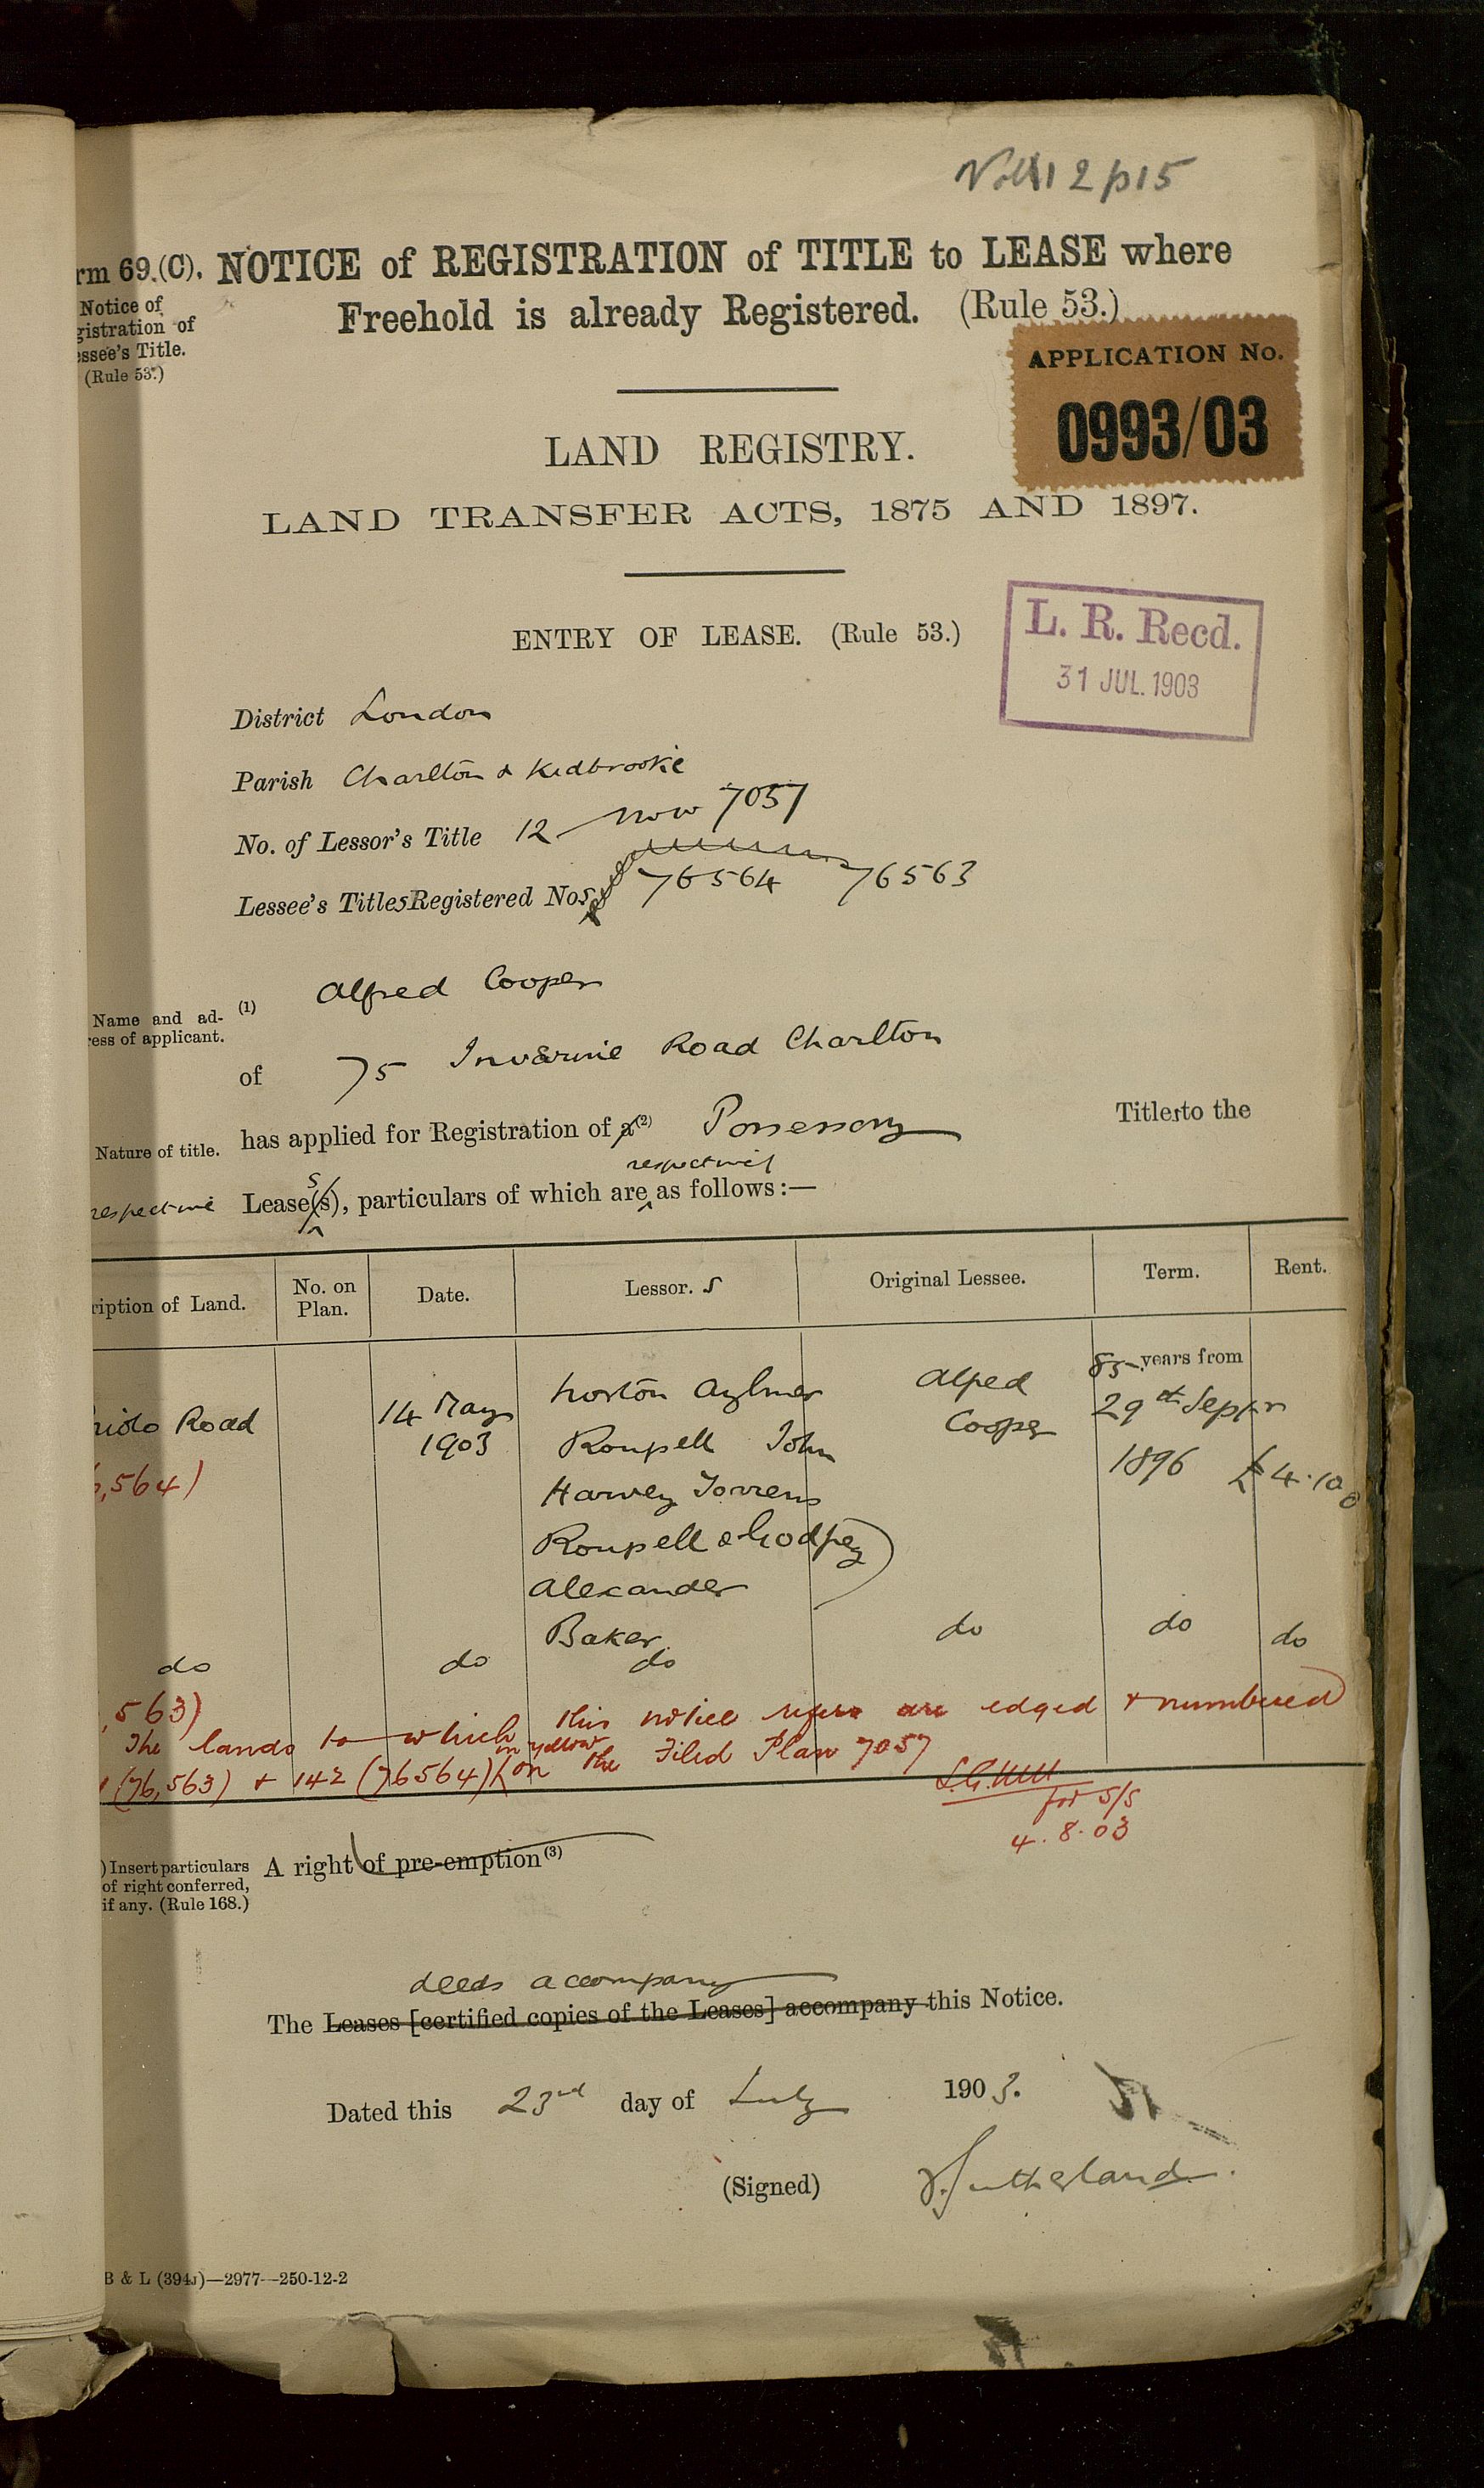 p15
rm 69.(C). NOTICE of REGISTRATION of TITLE to LEASE where
Freehold is already Registered. (Rule 53.)
Notice of
gistration of
essee's Title.
(Rule 53.)
APPLICATION No.
0993/03
LAND REGISTRY.
LAND TRANSFER ACTS, 1875 AND 1897.
ENTRY OF LEASE. (Rule 53.)
L. R. Recd.
31 JUL. 1903
District London
Parish Charlton & Kidbrooke
No. of Lessor's Title 12 now 7057
Lessee's Titles Registered Nos 76564 76563
Name and ad-
ress of applicant.
(1) Alfred Cooper
of 75 Inverine Road Charlton
Nature of title.
has applied for Registration of a (2) Possessory Titles to the
respective
respective Lease(s), particulars of which are as follows:—
ription of Land. No. on Plan. Date. Lessor.s Original Lessee. Term. Rent.
Road 14 May 1903 Norton Aylmer Alfred Cooper 85 years from
,564) Roupell John 29th Septr
Harvey Torrens 1896 £4.10
Roupell & Godfrey
Alexander
Baker
do do do do do do
,563)
The lands to which this notice refers are edged & numbered
(76,563) & 142 (76564) in yellow on the Filed Plan 7057
for S/S
4.8.03
) Insert particulars
of right conferred,
if any. (Rule 168.)
A right of pre-emption (3)
deeds accompany
The Leases [certified copies of the Leases] accompany this Notice.
Dated this 23rd day of July 1903.
(Signed) Sutherland
B & L (394J)—2977—250-12-2